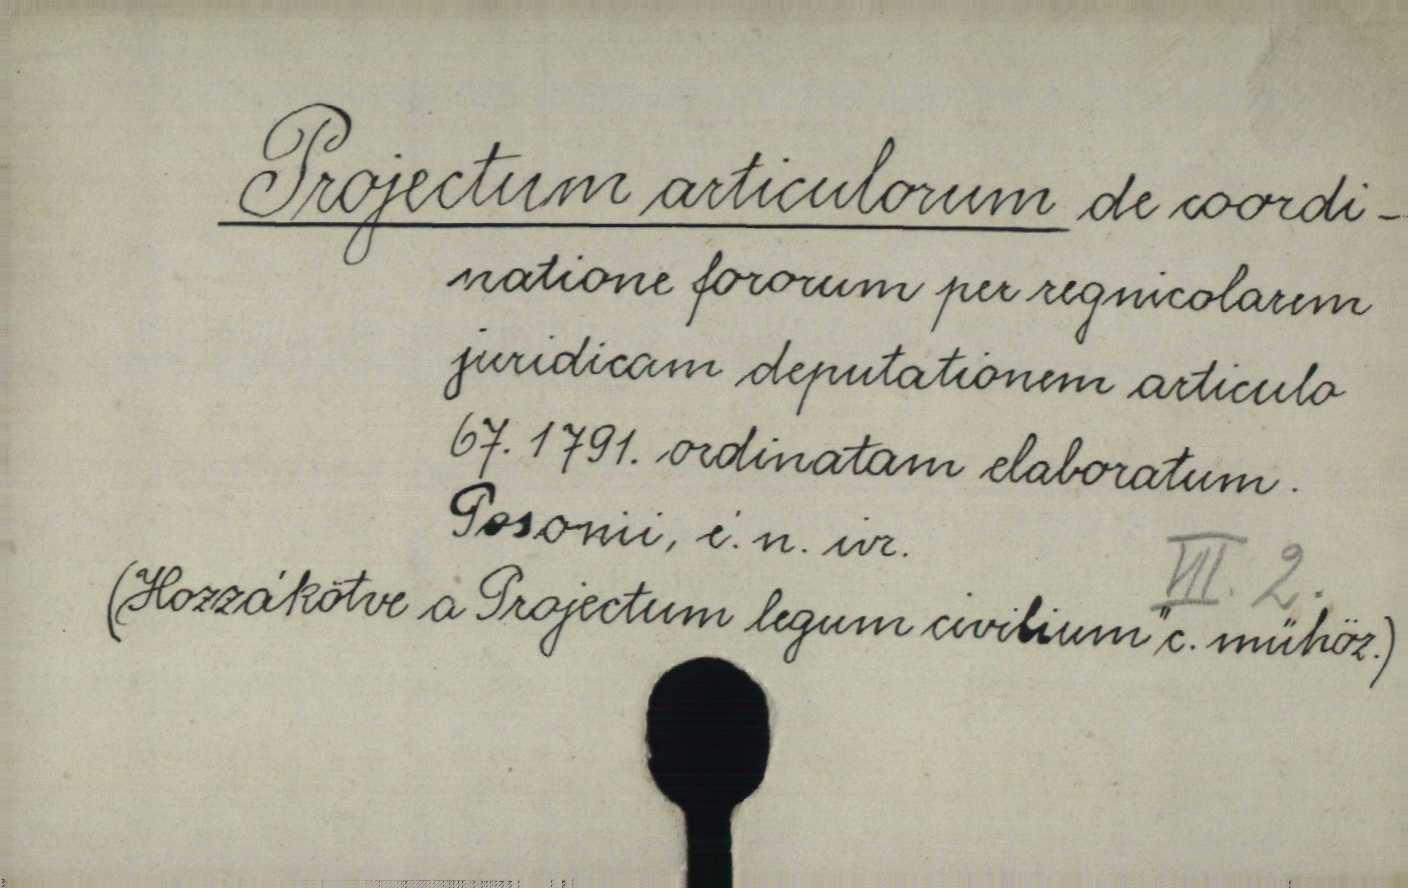 Projectum articulorum de coordi-
natione fororum per regnicolarem
juridicam deputationem articulo
67. 1791. ordinatam elaboratum.
Posonii, é. n. ivr.
VII. 2.
(Hozzákötve a Projectum legum civilium" c. műhöz.)